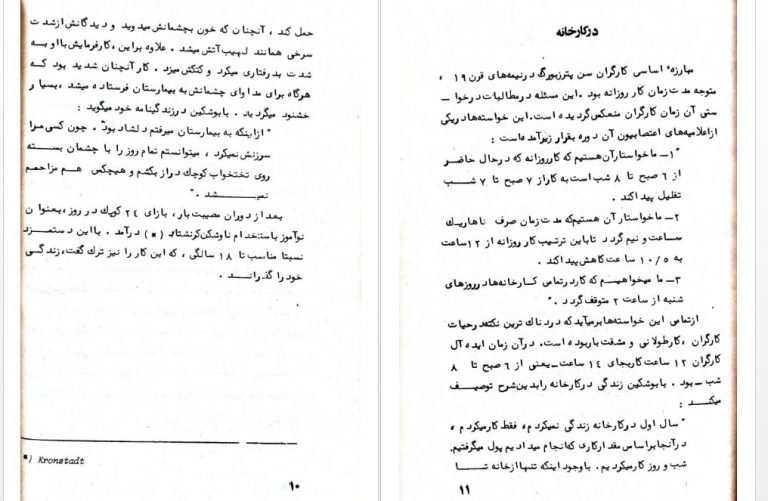 حمل کند ، آنچنان که خون بچشمانش میدوید و دیدگانش ازشدت
سرخی همانند لهیب آتش میشد . علاوه براین ، کارفرمایش با او به
شدت بدرفتاری میکرد و کتکش میزد . کار آنچنان شدید بود که
هرگاه برای مداوای چشمانش به بیمارستان فرستاده میشد ، بسیار
خشنود میگردید . بابوشکین درزندگینامه خود میگوید :
" ازاینکه به بیمارستان میرفتم دلشاد بود . چون کسی مرا
سرزنش نمیکرد ، میتوانستم تمام روز را با چشمان بسته
روی تختخواب کوچک دراز بکشم و هیچکس هم مزاحمم
نمیشد . "
بعد از دوران مصیبت بار ، بازای ۲۴ کوپک در روز ، بعنوان
نوآموز باستخدام ناوشکن کرنشتاد (*) درآمد . با این دستمزد
نسبتا مناسب تا ۱۸ سالگی ، که این کار را نیز ترک گفت ، زندگی
خود را گذراند .
*) Kronstadt
۱۰
درکارخانه
مبارزه اساسی کارگران سن پترزبورگ درنیمه‌های قرن ۱۹ ،
متوجه مدت زمان کار روزانه بود . این مسئله درمطالبات درخوا ـ
ستی آن زمان کارگران منعکس گردیده است . این خواسته‌ها دریکی
ازاعلامیه‌های اعتصابیون آن دوره بقرار زیر آمده است :
" ۱ـ ما خواستار آن هستیم که کار روزانه که درحال حاضر
از ۶ صبح تا ۸ شب است به کار از ۷ صبح تا ۷ شب
تقلیل پیدا کند .
۲ـ ما خواستار آن هستیم که مدت زمان صرف ناهار یک
ساعت و نیم گردد تا باین ترتیب کار روزانه از ۱۲ ساعت
به ۱۰/۵ ساعت کاهش پیدا کند .
۳ـ ما میخواهیم که کار درتمامی کارخانه‌ها در روزهای
شنبه از ساعت ۲ متوقف گردد . "
ازتمامی این خواسته‌ها برمیآید که دردناک ترین نکته درحیات
کارگران ، کار طولانی و مشقت بار بوده است . درآن زمان ایده آل
کارگران ۱۲ ساعت کار بجای ۱۴ ساعت ـ یعنی از ۶ صبح تا ۸
شب ـ بود . بابوشکین زندگی درکارخانه را بدین شرح توصیف
میکند :
" سال اول درکارخانه زندگی نمیکردم ، فقط کار میکردم ،
درآنجا براساس مقدار کاری که انجام میدادیم پول میگرفتیم .
شب و روز کار میکردیم . با وجود اینکه تنها از خانه تا
۱۱